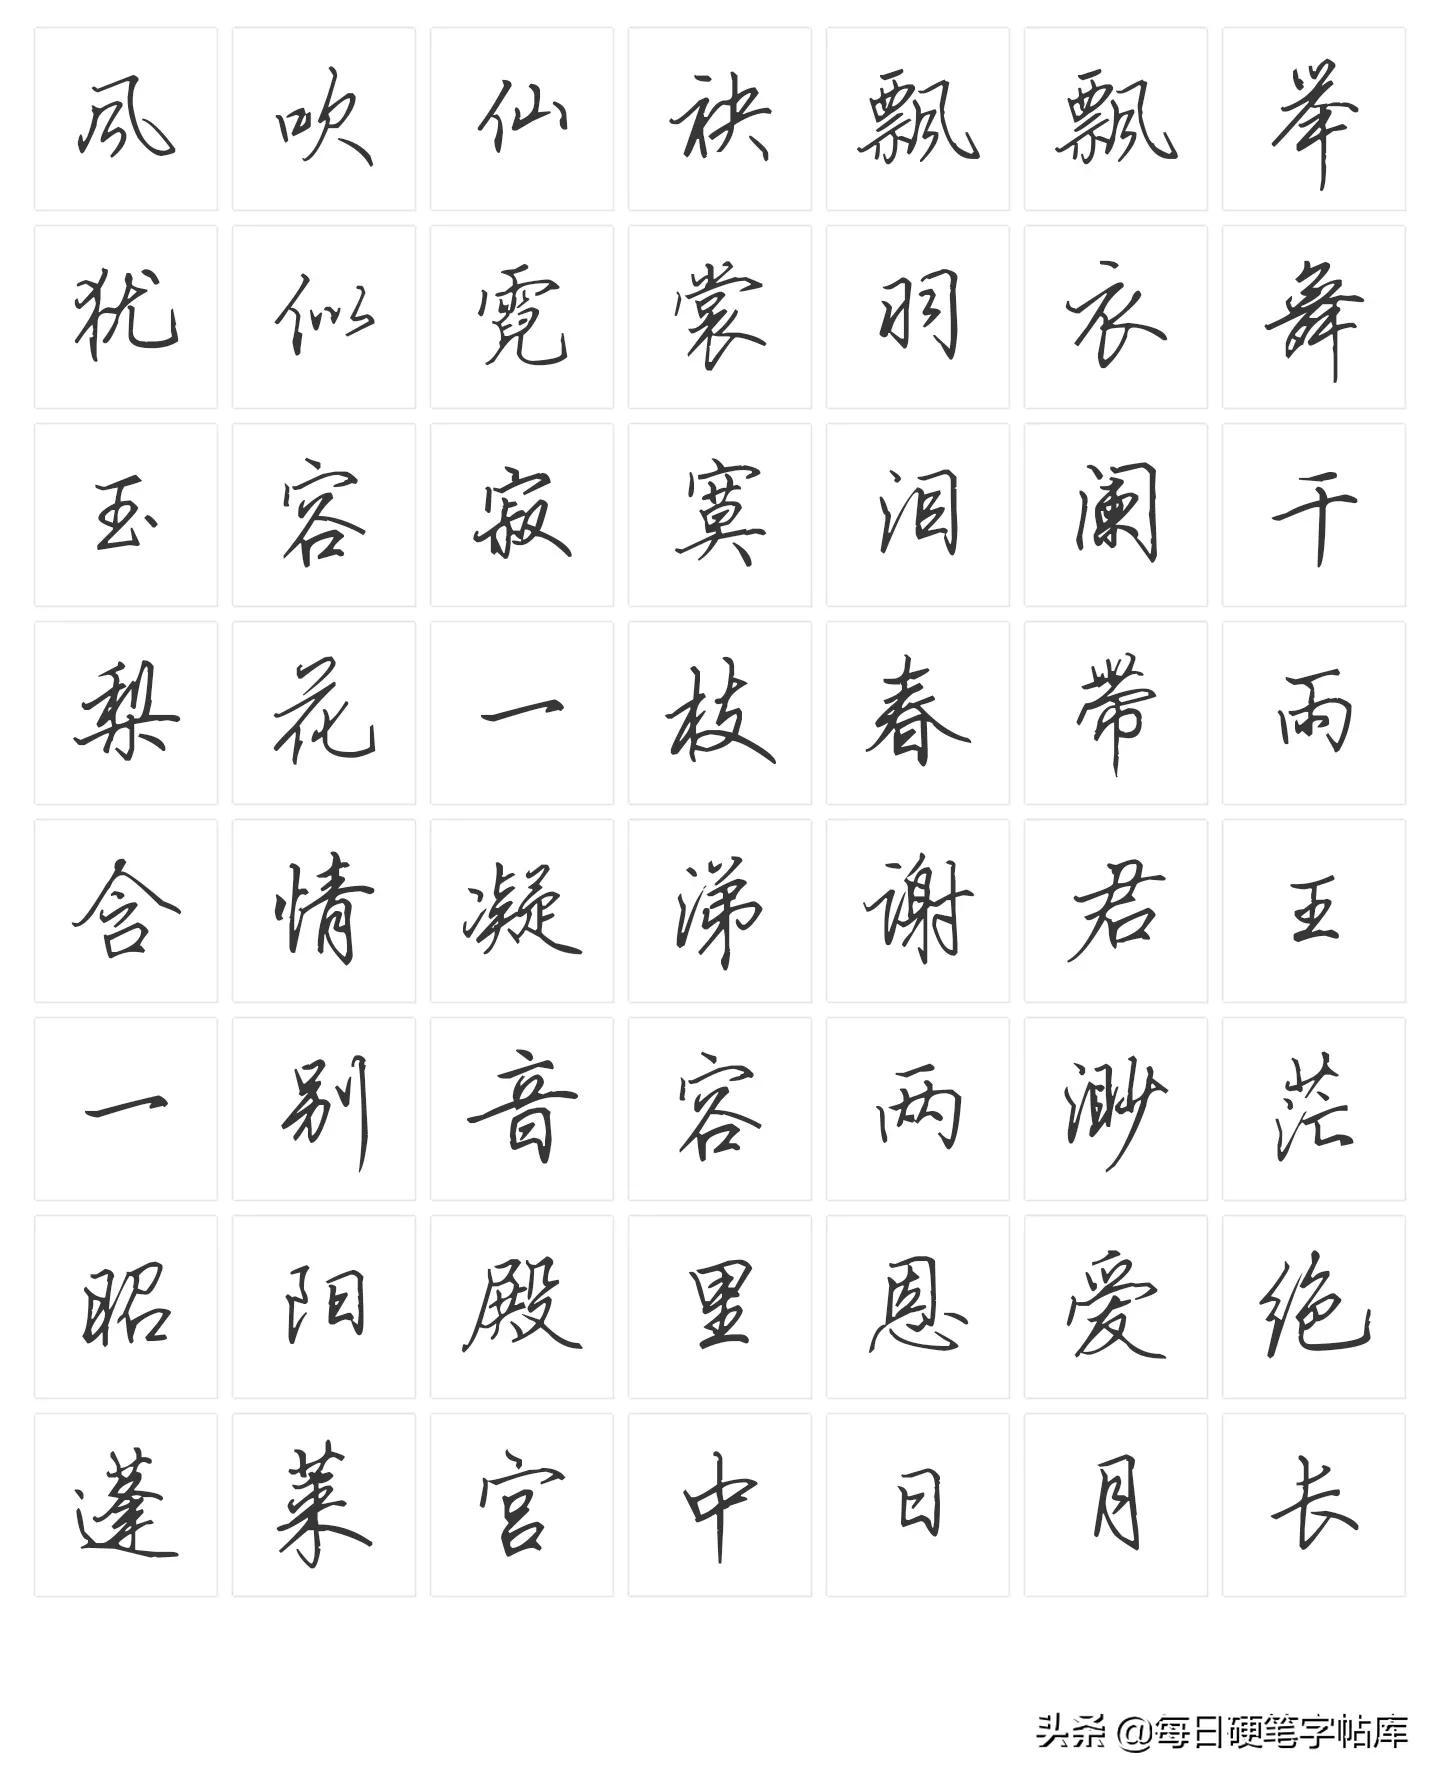 风吹仙袂飘飘举
犹似霓裳羽衣舞
玉容寂寞泪阑干
梨花一枝春带雨
含情凝涕谢君王
一别音容两渺茫
昭阳殿里恩爱绝
蓬莱宫中日月长
头条 @每日硬笔字帖库